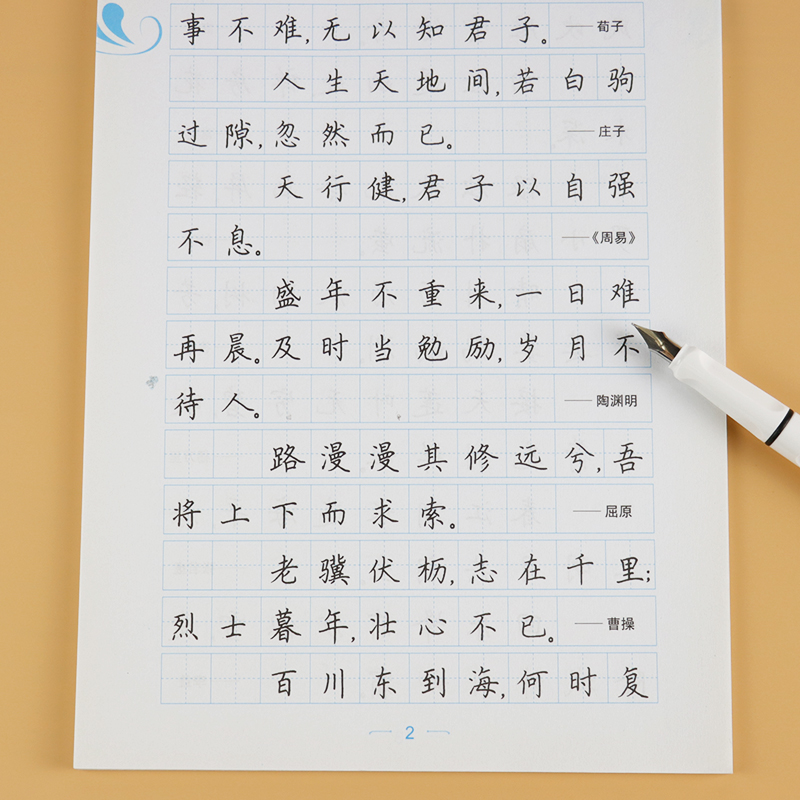 事不难,无以知君子。——荀子
人生天地间,若白驹
过隙,忽然而已。——庄子
天行健,君子以自强
不息。——《周易》
盛年不重来,一日难
再晨。及时当勉励,岁月不
待人。——陶渊明
路漫漫其修远兮,吾
将上下而求索。——屈原
老骥伏枥,志在千里;
烈士暮年,壮心不已。——曹操
百川东到海,何时复
2